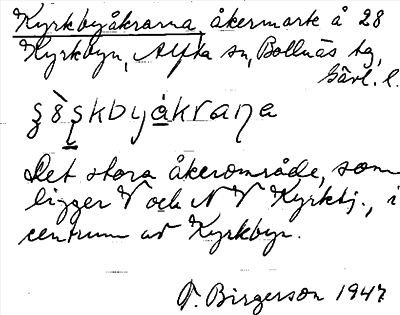 Kyrkbyåkrarna, åkermark å 28
Kyrkbyn, Alfta sn, Bollnäs tg,
Gävl. l.
Det stora åkerområde, som
ligger V och NV Kyrkbj., i
centrum av Kyrkbyn.
V. Birgerson 1947